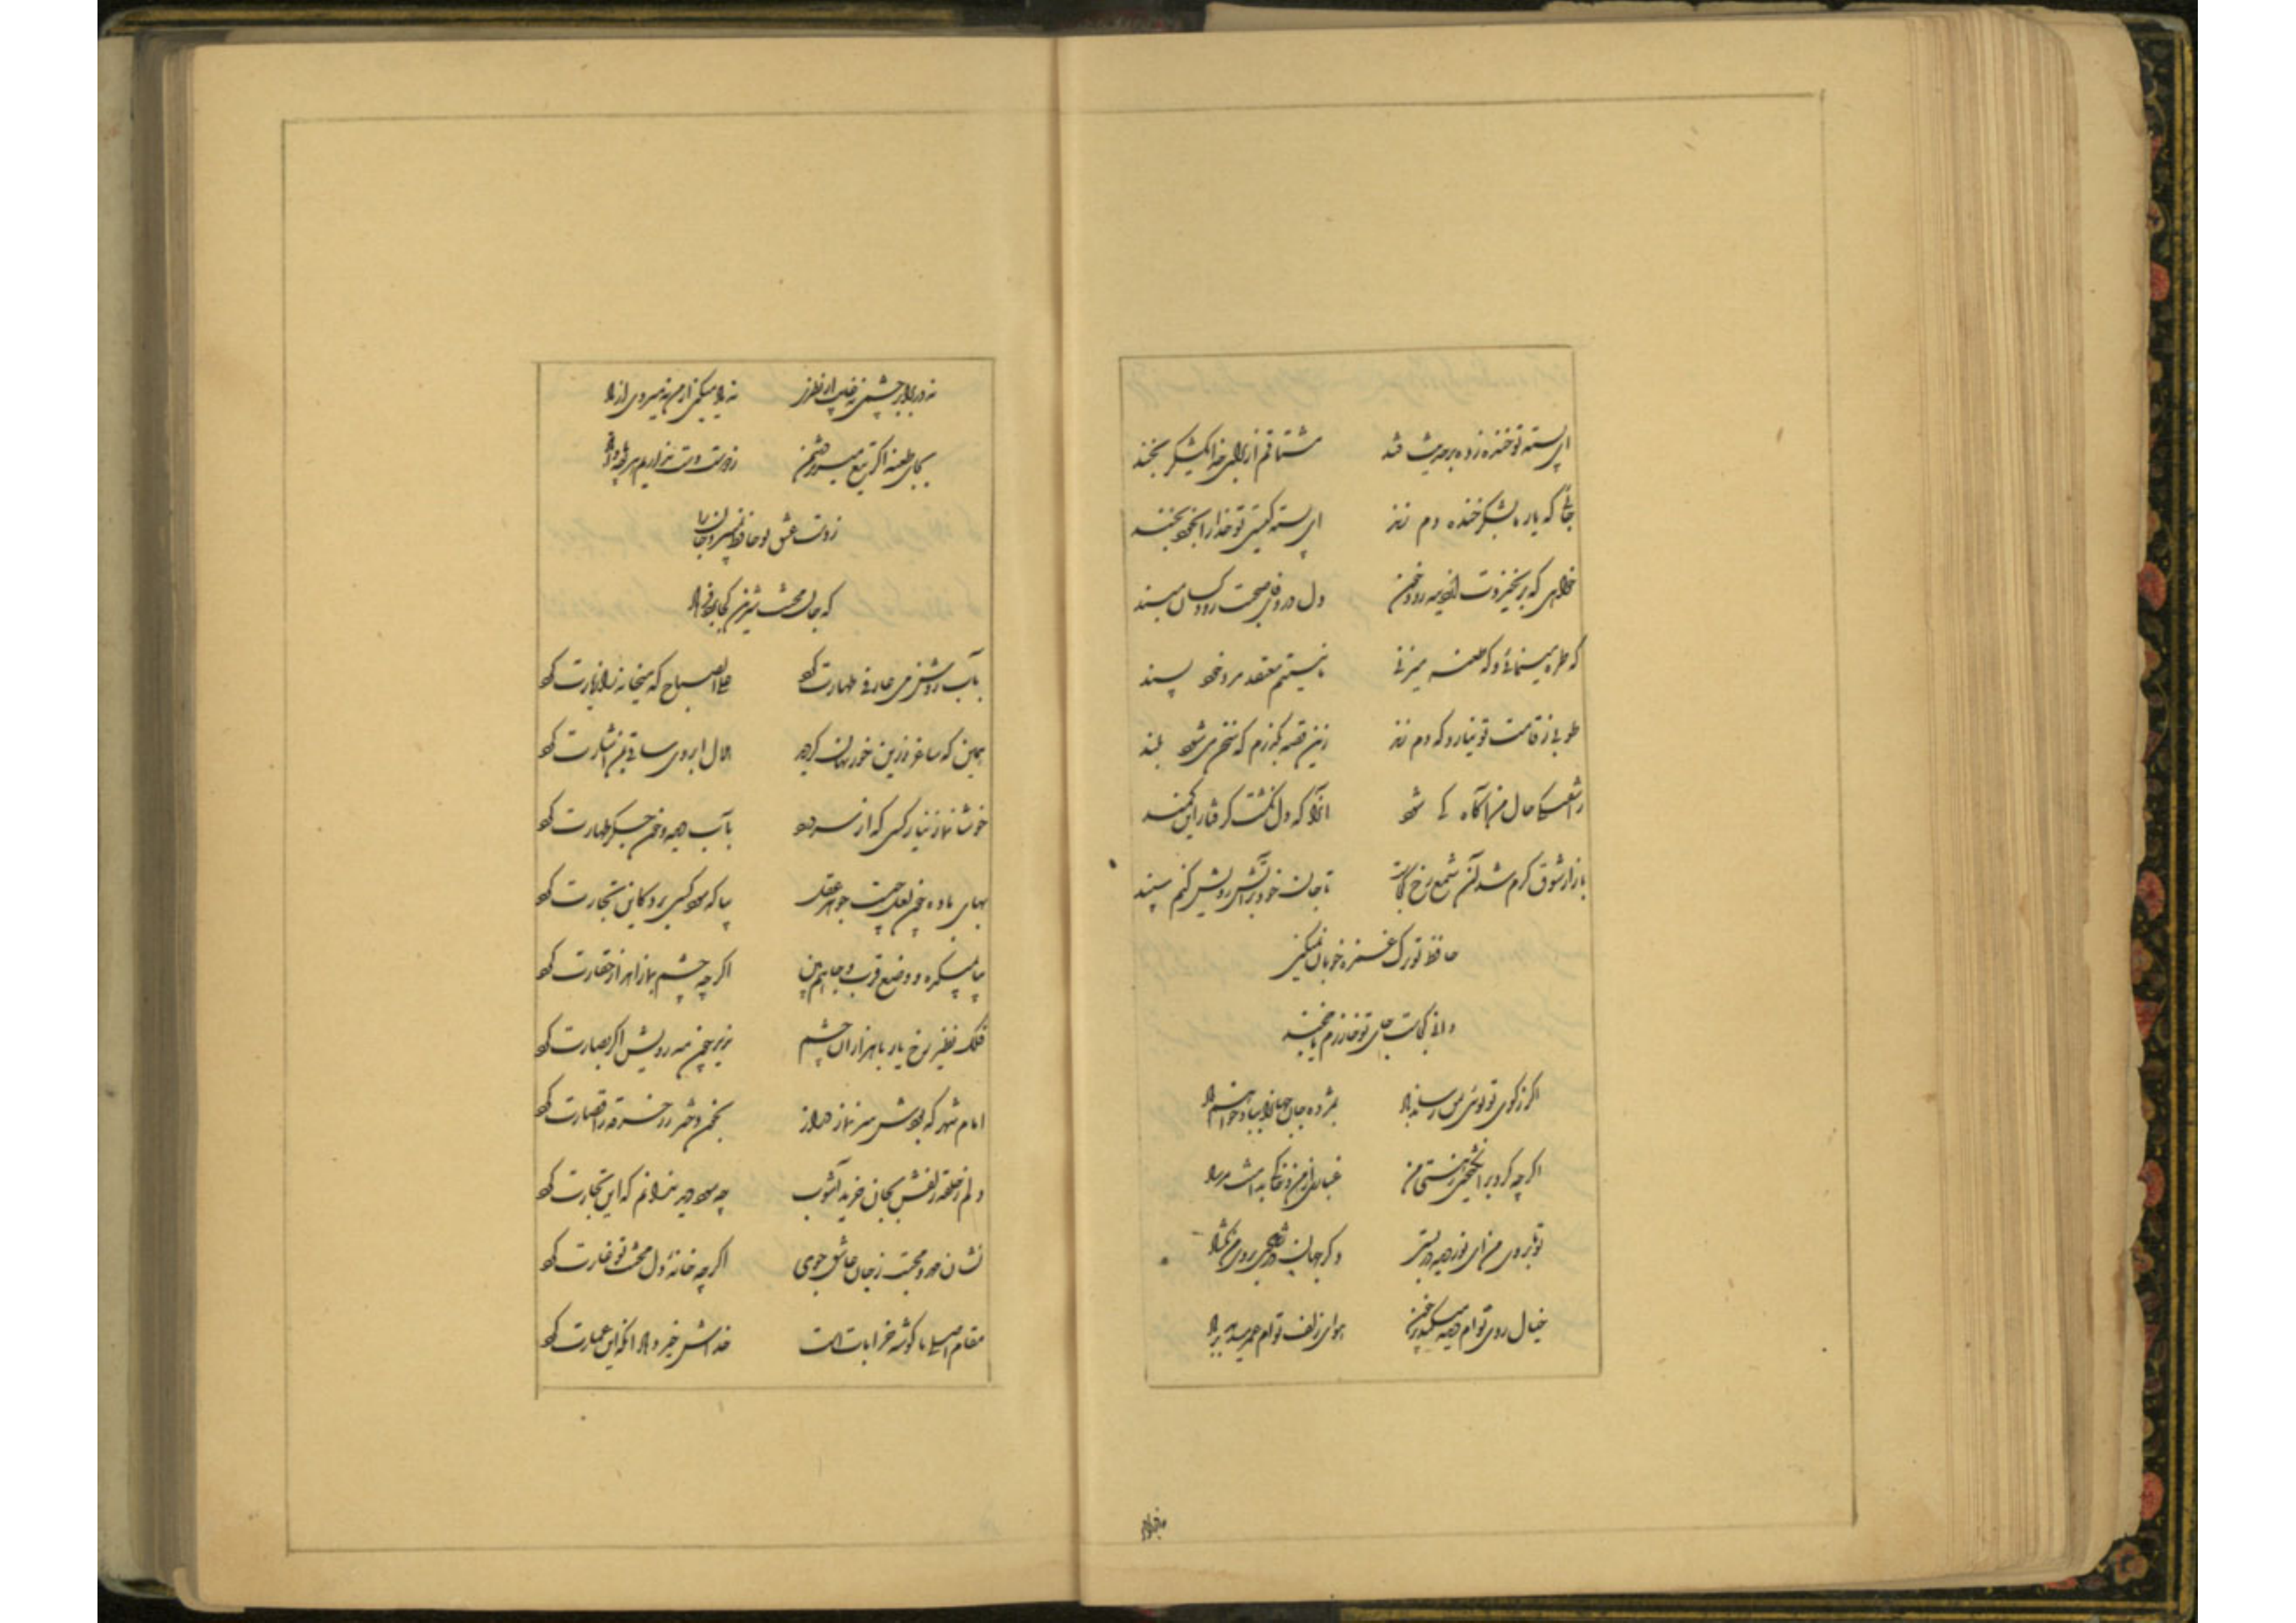 ای پسته تو خنده زده بر حدیث قند    مشتاقم از برای خدا یک شکر بخند
جائی که یار ما بشکر خنده دم زند    ای پسته کیستی تو خدا را بخود مخند
خواهی که بر نخیزدت از دیده رود خون    دل در وفای صحبت رود کسان مبند
که طره مینمائی و که طعنه میزنی    ما نیستیم معتقد مرد خود پسند
طوبی ز قامت تو نیارد که دم زند    زین قصه بگذرم که سخن می شود بلند
ز آشفتگی حال من آگاه کی شود    آنرا که دل نکشت گرفتار این کمند
بازار شوق گرم شد آن شمع رخ کجاست    تا جان خود بر آتش رویش کنم سپند
حافظ تو ترک غمزه خوبان نمیکنی
دانی کجاست جای تو خوارزم یا خجند
اگر ز کوی تو بوئی بمن رساند باد    بمژده جان جهان را بباد خواهم داد
اگر چه گرد بر انگیختی ز هستی من    غباری از من خاکی بدامنت مرساد
تو تا بروی من ای نور دیده در بستی    دگر جهان در شادی بروی من نگشاد
خیال روی توام دیده میکند پر خون    هوای زلف توام عمر میدهد بر باد
نه در برابر چشمی نه غایب از نظری    نه یاد میکنی از من نه میروی از یاد
بجای طعنه اگر تیغ میزند دشمن    ز دوست دست نداریم هر چه بادا باد
ز دست عشق تو حافظ نبرد جان
که جان محنت شیرین کجا برد فرهاد
بآب روشن می عارفی طهارت کرد    علی الصباح که میخانه را زیارت کرد
همین که ساغر زرین خور نهان گردید    هلال ابروی ساقی بمی اشارت کرد
خوشا نماز نیاز کسی که از سر درد    بآب دیده و خون جگر طهارت کرد
بهای باده چون لعل چیست جوهر عقل    بیا که سود کسی برد کاین تجارت کرد
بیا بمیکده و وضع قرب و جاهم بین    اگر چه چشم بما زاهد از حقارت کرد
فلک نظیر رخ یار با هزاران چشم    ندید چون مه رویش اگر بصارت کرد
امام شهر که بودش سر نماز دراز    بخون دختر رز خرقه را قصارت کرد
دلم ز حلقه زلفش بجان خرید آشوب    چه سود دید ندانم که این تجارت کرد
نشان مهر و محبت ز جان عاشق جوی    اگر چه خانه دل محنت تو غارت کرد
مقام اصلی ما گوشه خرابات است    خداش خیر دهاد آنکه این عمارت کرد